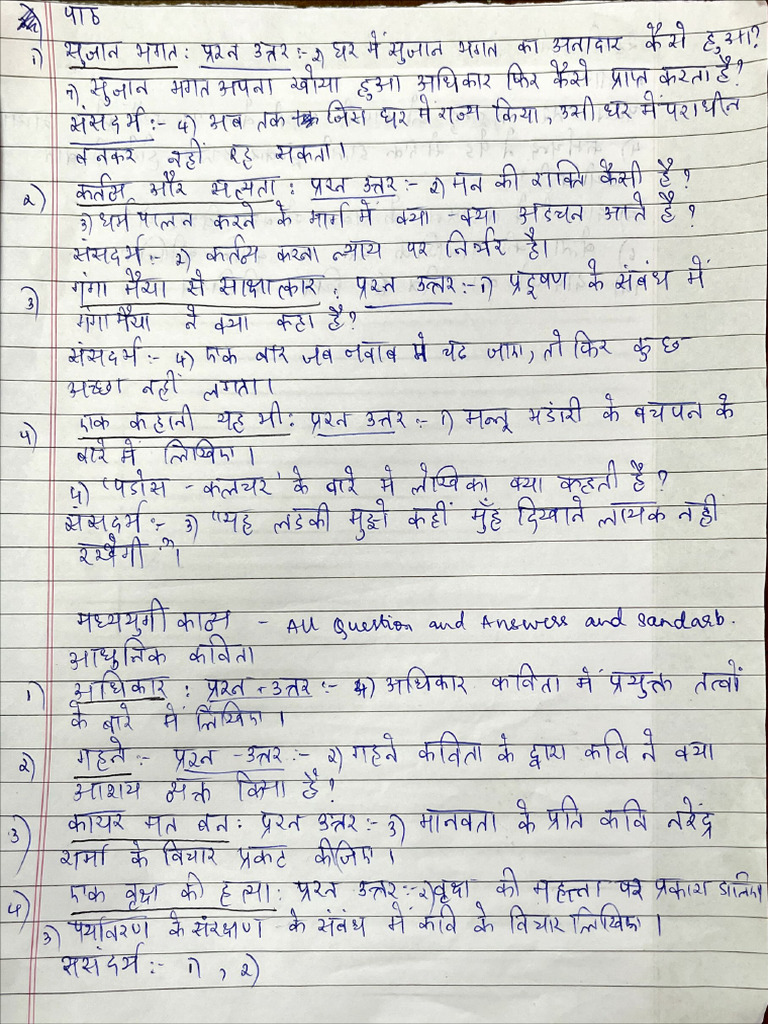 पाठ
1) सुजान भगत: प्रश्न उत्तर :- 2) घर में सुजान भगत का अनादार कैसे हुआ?
7) सुजान भगत अपना खोया हुआ अधिकार फिर कैसे प्राप्त करता है?
संसदर्भ :- 4) अब तक जिस घर में राज्य किया, उसी घर में पराधीन
बनकर नहीं रह सकता।
2) कर्तव्य और सत्यता : प्रश्न उत्तर :- 2) मन की शक्ति कैसी है?
3) धर्म पालन करने के मार्ग में क्या-क्या अडचन आते है?
संसदर्भ :- 2) कर्तव्य करना न्याय पर निर्भर है।
3) गंगा मैया से साक्षात्कार : प्रश्न उत्तर :- 1) प्रदूषण के संबंध में
गंगा मैया ने क्या कहा है?
संसदर्भ :- 4) एक बार जब जवाब मे चढ जाए, तो फिर कुछ
अच्छा नहीं लगता।
4) एक कहानी यह भी : प्रश्न उत्तर :- 1) मन्नू भंडारी के बचपन के
बारे में लिखिए।
4) 'पडोस - कलचर' के बारे मे लेखिका क्या कहती है?
संसदर्भ :- 3) "यह लडकी मुझे कहीं मुँह दिखाने लायक नही
रखेगी"।
मध्ययुगी काव्य - All Question and Answers and Sandarb.
आधुनिक कविता
1) अधिकार : प्रश्न - उत्तर :- 4) अधिकार कविता में प्रयुक्त तत्वों
के बारे में लिखिए।
2) गहने :- प्रश्न - उत्तर :- 2) गहने कविता के द्वारा कवि ने क्या
आशय व्यक्त किया है?
3) कायर मत बन : प्रश्न उत्तर :- 3) मानवता के प्रति कवि नरेंद्र
शर्मा के विचार प्रकट कीजिए।
4) एक वृक्ष की हत्या : प्रश्न उत्तर :- 2) वृक्ष की महत्ता पर प्रकाश डालिए
3) पर्यावरण के संरक्षण के संबंध में कवि के विचार लिखिए।
ससंदर्भ :- 1) , 2)